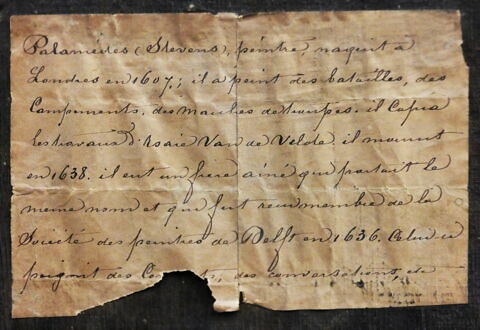 Palamèdes (Stevens), peintre, naquit à
Londres en 1607; il a peint des batailles, des
Campements, des Marches de troupes. il Copia
les travaux d'Isaïe Van de Velde. il mourut
en 1638. il eut un frère ainé qui portait le
meme nom et qui fut reçu membre de la
Société des peintres de Delft en 1636. Celui-ci
peignit des des conversations, de